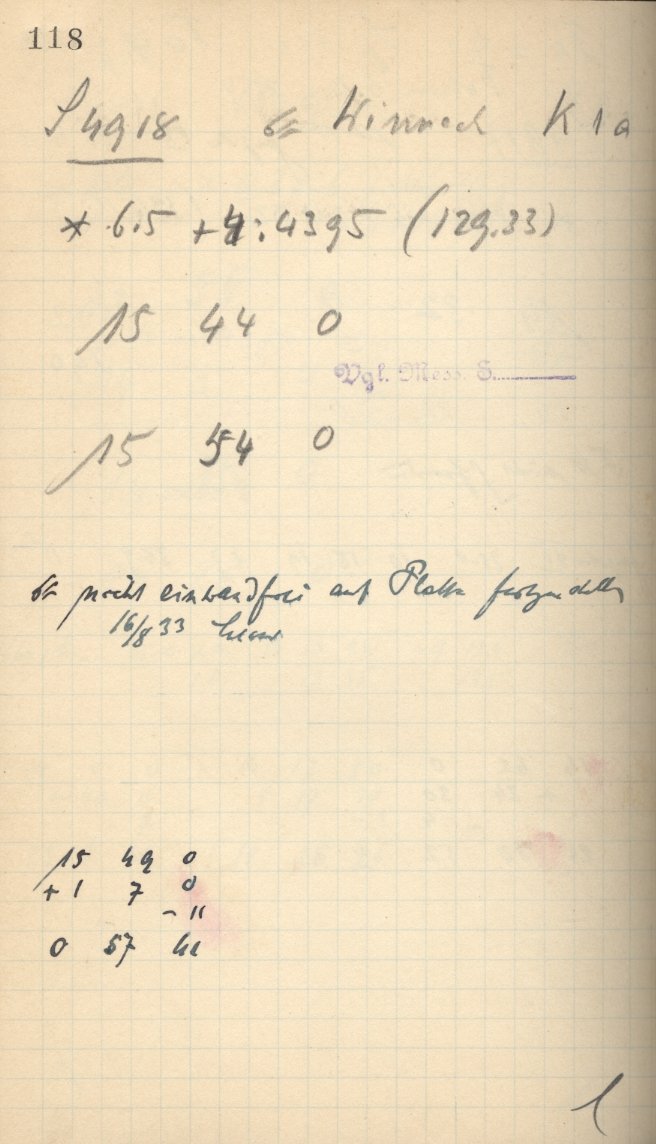 118
S 4918 Winneck K 1 a
* 6.5 + 4: 4395 (129.33)
15 44 0
Vgl. Mess. S.
15 54 0
nicht einwandfrei auf Platte festzustellen
16/8 33
15 49 0
+ 1 7 0
- 11
0 57 41